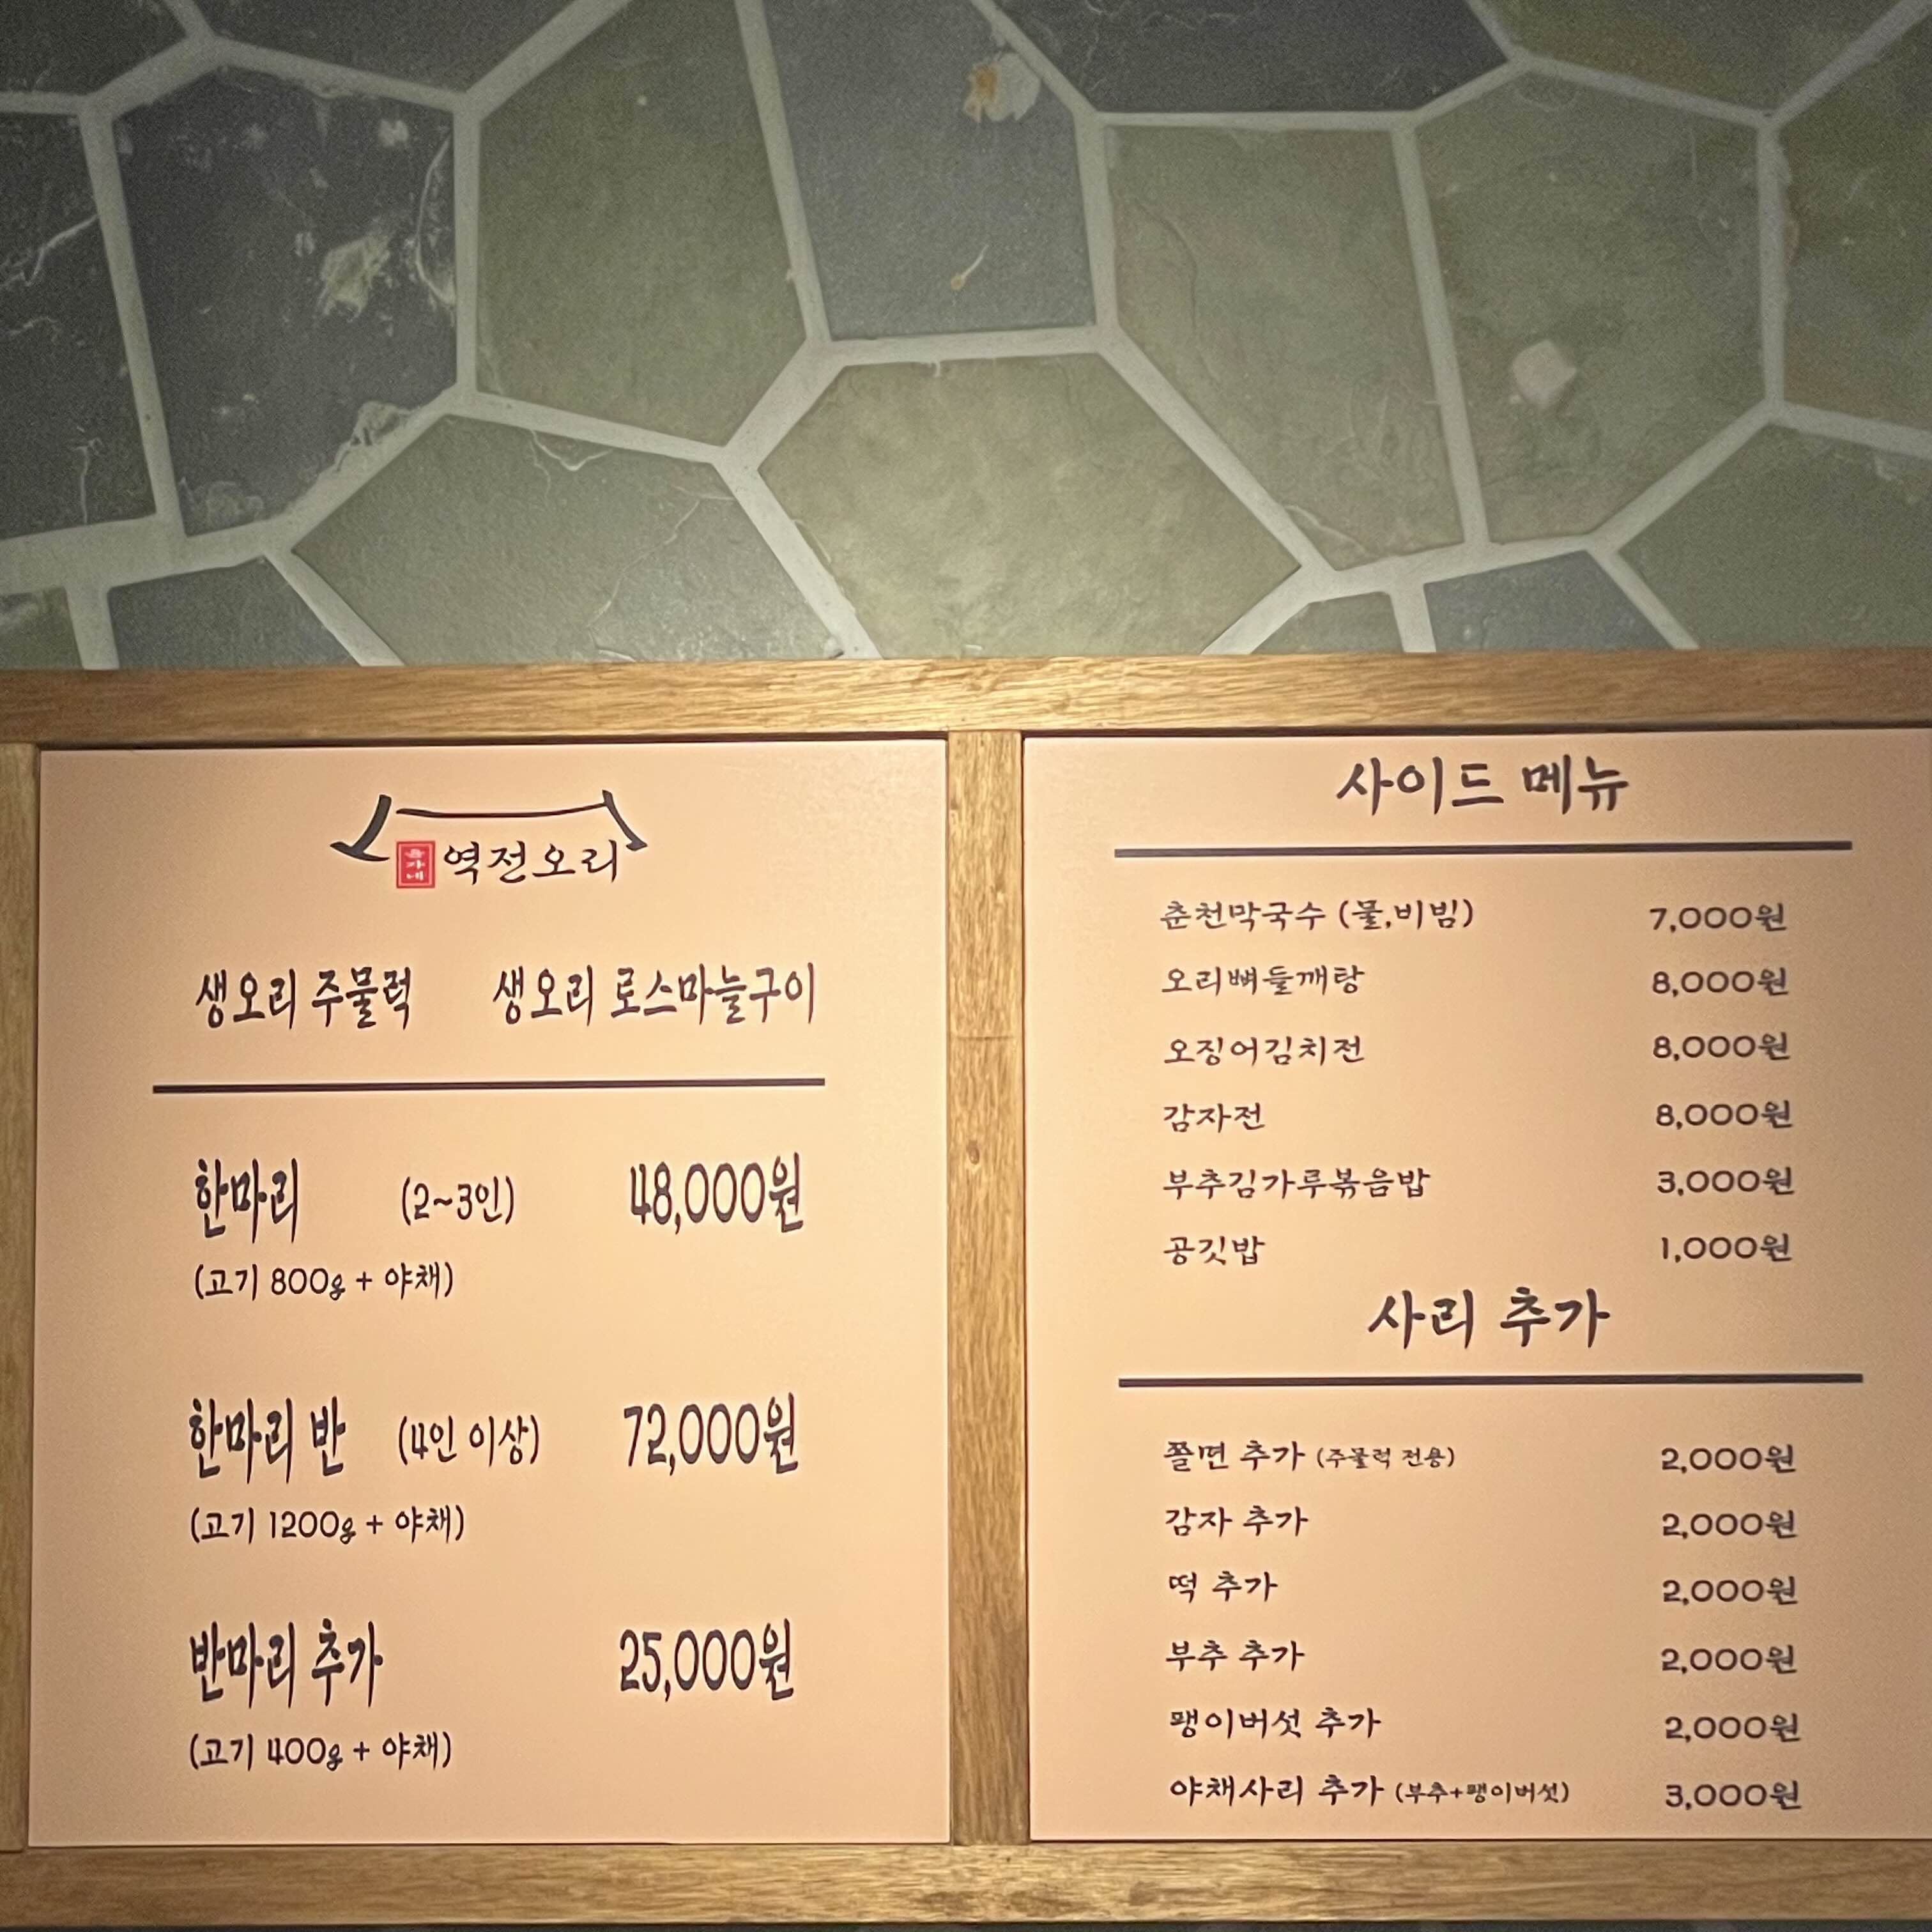 윤가네 역전오리
생오리 주물럭 생오리 로스마늘구이
한마리 (2~3인) 48,000원
(고기 800g + 야채)
한마리 반 (4인 이상) 72,000원
(고기 1200g + 야채)
반마리 추가 25,000원
(고기 400g + 야채)
사이드 메뉴
춘천막국수 (물,비빔) 7,000원
오리뼈들깨탕 8,000원
오징어김치전 8,000원
감자전 8,000원
부추김가루볶음밥 3,000원
공깃밥 1,000원
사리 추가
쫄면 추가 (주물럭 전용) 2,000원
감자 추가 2,000원
떡 추가 2,000원
부추 추가 2,000원
팽이버섯 추가 2,000원
야채사리 추가 (부추+팽이버섯) 3,000원